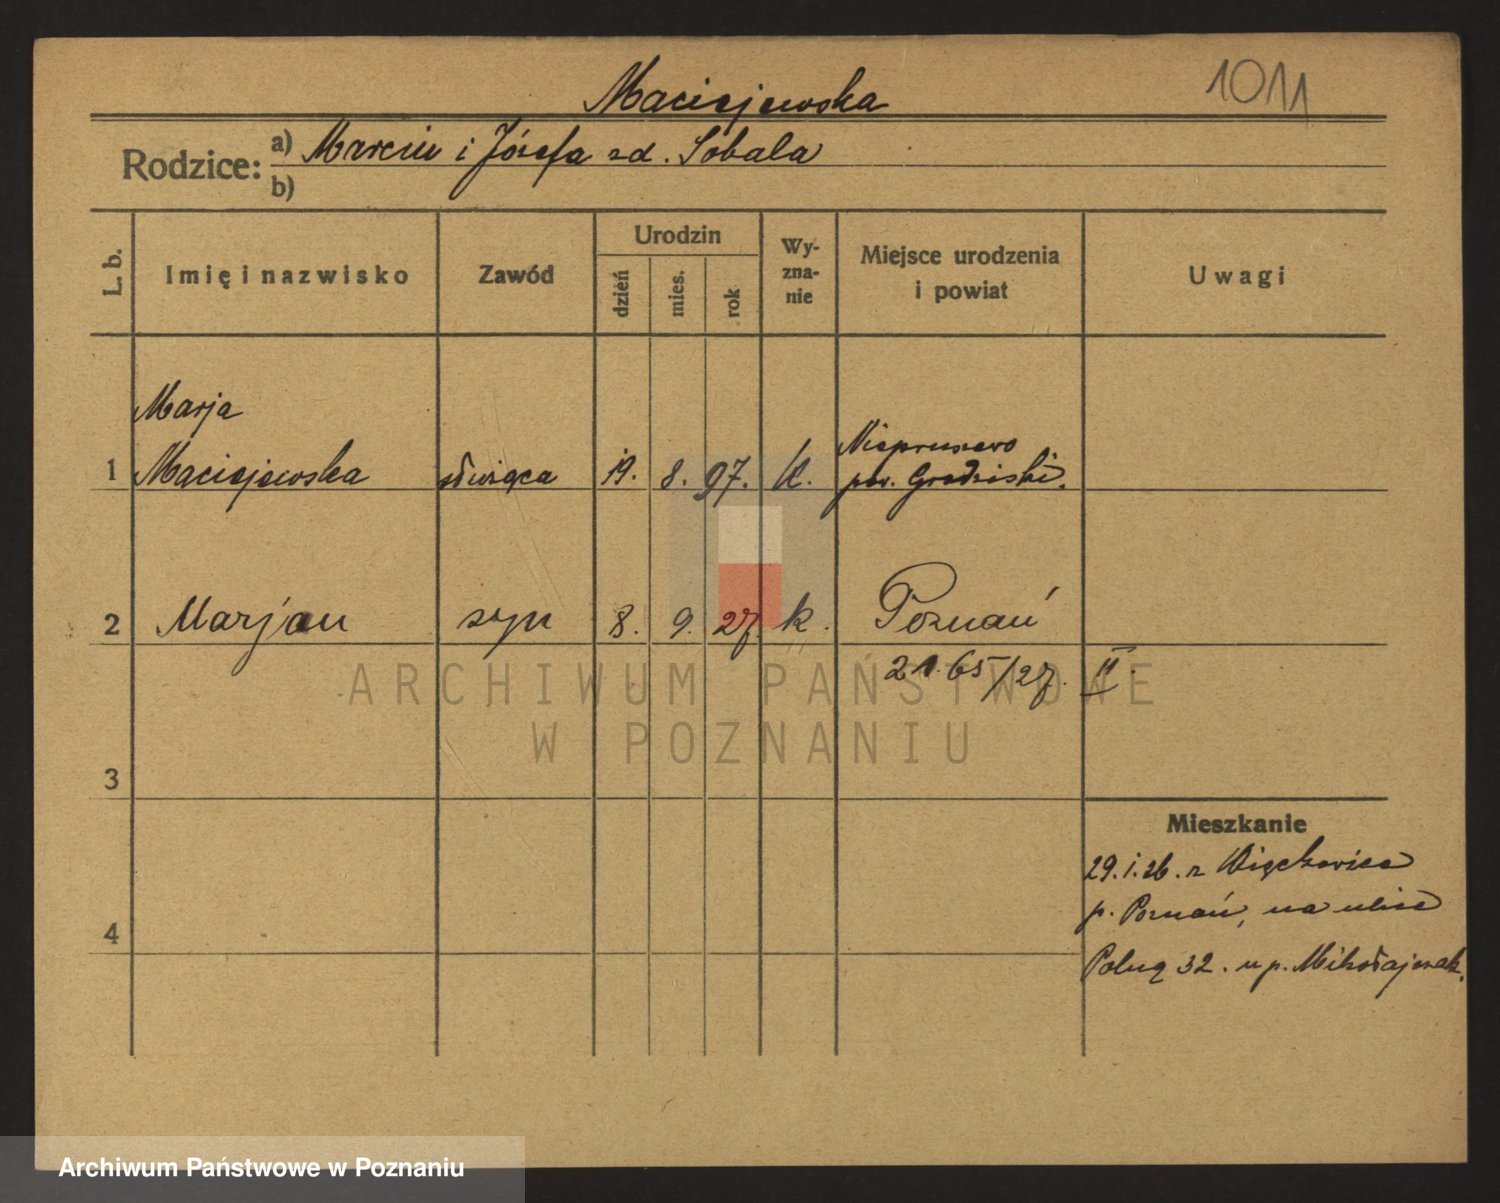 Maciejewska
1011
Rodzice: a) Marcin i Józefa zd. Sobala
b)
L. b.
Imię i nazwisko
Zawód
Urodzin
dzień
mies.
rok
Wy-
zna-
nie
Miejsce urodzenia
i powiat
Uwagi
Marja
1 Maciejewska służąca 19. 8. 97. k. Niepruszewo
pow. Grodziski.
2 Marjan syn 8. 9. 27. k. Poznań
2165/27. II.
ARCHIWUM PAŃSTWOWE
W POZNANIU
3
Mieszkanie
29.1.26. z Więckowice
p. Poznań, na ulice
4
Polną 32. u p. Mikołajczak.
Archiwum Państwowe w Poznaniu